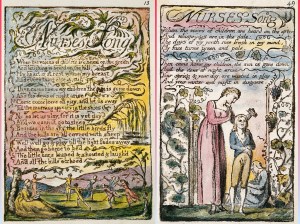 Nurse's Song
When the voices of children are heard on the green
And laughing is heard on the hill
My heart is at rest within my breast
And every thing else is still
Then come home my children the sun is gone down
And the dews of night arise
Come come leave off play, and let us away
Till the morning appears in the skies
No no let us play, for it is yet day
And we cannot go to sleep
Besides in the sky, the little birds fly
And the hills are all coverd with sheep
Well well go & play till the light fades away
And then go home to bed
The little ones leaped & shouted & laugh'd
And all the hills ecchoed
NURSES Song
When the voices of children, are heard on the green
And whisprings are in the dale
The days of my youth rise fresh in my mind
My face turns green and pale
Then come home my children, the sun is gone down
And the dews of night arise
Your spring & your day, are wasted in play
And your winter and night in disguise